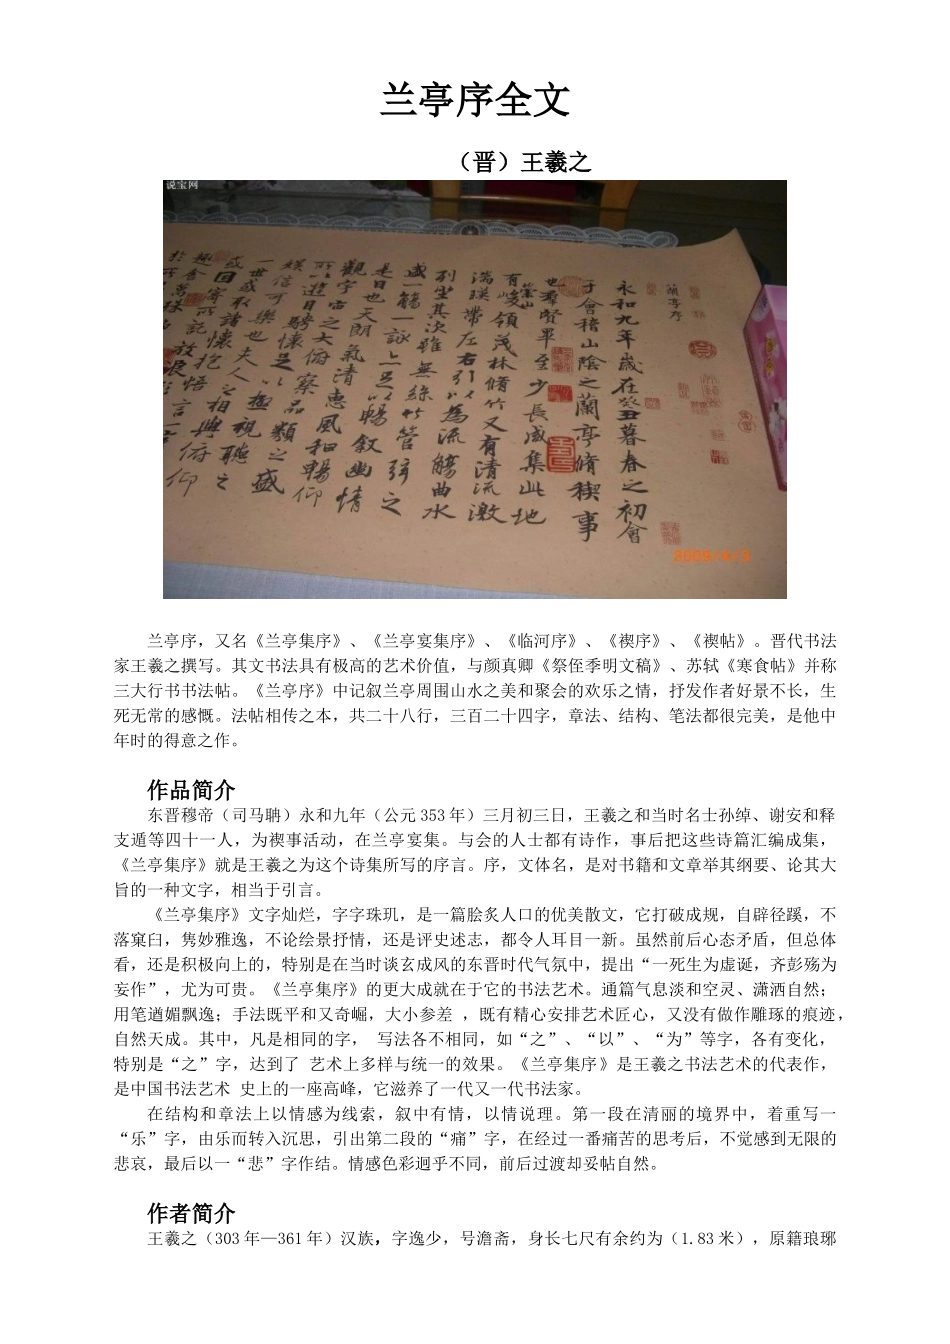 兰亭序全文
（晋）王羲之
说宝网
蘭亭序
永和九年歲在癸丑暮春之初會
于會稽山陰之蘭亭脩稧事
也羣賢畢至少長咸集此地
有崇山峻領茂林脩竹又有清流激
湍暎帶左右引以為流觴曲水
列坐其次雖無絲竹管弦之
盛一觴一詠亦足以暢敘幽情
是日也天朗氣清惠風和暢仰
觀宇宙之大俯察品類之盛
所以遊目騁懷足以極視聽之
娛信可樂也夫人之相與俯仰
一世或取諸懷抱悟言一
或因寄所託放浪
趣舍萬殊
兰亭序，又名《兰亭集序》、《兰亭宴集序》、《临河序》、《禊序》、《禊帖》。晋代书法
家王羲之撰写。其文书法具有极高的艺术价值，与颜真卿《祭侄季明文稿》、苏轼《寒食帖》并称
三大行书书法帖。《兰亭序》中记叙兰亭周围山水之美和聚会的欢乐之情，抒发作者好景不长，生
死无常的感慨。法帖相传之本，共二十八行，三百二十四字，章法、结构、笔法都很完美，是他中
年时的得意之作。
作品简介
东晋穆帝（司马聃）永和九年（公元 353 年）三月初三日，王羲之和当时名士孙绰、谢安和释
支遁等四十一人，为禊事活动，在兰亭宴集。与会的人士都有诗作，事后把这些诗篇汇编成集，
《兰亭集序》就是王羲之为这个诗集所写的序言。序，文体名，是对书籍和文章举其纲要、论其大
旨的一种文字，相当于引言。
《兰亭集序》文字灿烂，字字珠玑，是一篇脍炙人口的优美散文，它打破成规，自辟径蹊，不
落窠臼，隽妙雅逸，不论绘景抒情，还是评史述志，都令人耳目一新。虽然前后心态矛盾，但总体
看，还是积极向上的，特别是在当时谈玄成风的东晋时代气氛中，提出“一死生为虚诞，齐彭殇为
妄作”，尤为可贵。《兰亭集序》的更大成就在于它的书法艺术。通篇气息淡和空灵、潇洒自然；
用笔遒媚飘逸；手法既平和又奇崛，大小参差 ，既有精心安排艺术匠心，又没有做作雕琢的痕迹，
自然天成。其中，凡是相同的字， 写法各不相同，如“之”、“以”、“为”等字，各有变化，
特别是“之”字，达到了 艺术上多样与统一的效果。《兰亭集序》是王羲之书法艺术的代表作，
是中国书法艺术 史上的一座高峰，它滋养了一代又一代书法家。
在结构和章法上以情感为线索，叙中有情，以情说理。第一段在清丽的境界中，着重写一
“乐”字，由乐而转入沉思，引出第二段的“痛”字，在经过一番痛苦的思考后，不觉感到无限的
悲哀，最后以一“悲”字作结。情感色彩迥乎不同，前后过渡却妥帖自然。
作者简介
王羲之（303 年—361 年）汉族，字逸少，号澹斋，身长七尺有余约为（1.83 米），原籍琅琊